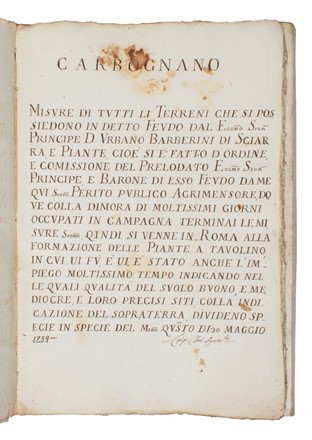 CARBOGNANO
MISVRE DI TVTTI LI TERRENI CHE SI POS
SIEDONO IN DETTO FEVDO DAL ECCMO SIGR
PRINCIPE D. VRBANO BARBERINI DI SCIAR
RA, E PIANTE, CIOÈ SI È FATTO D'ORDINE,
E COMISSIONE DEL PRELODATO ECCMO SIGR
PRINCIPE, E BARONE DI ESSO FEVDO DA ME
QVI PERITO PVBLICO AGRIMENSORE, DO
VE COLLA DIMORA DI MOLTISSIMI GIORNI
OCCVPATI IN CAMPAGNA TERMINAI LE MI
SVRE QINDI SI VENNE IN, ROMA ALLA
FORMAZIONE DELLE PIANTE A TAVOLINO
IN CVI VI FV E VI, E STATO ANCHE L'IM
PIEGO MOLTISSIMO TEMPO INDICANDO NEL
LE QVALI QVALITA DEL SVOLO BVONO, E ME
DIOCRE, E LORO PRECISI SITI COLLA INDI
CAZIONE DEL SOPRATERRA, DIVIDENO SPE
CIE IN SPECIE DEL QVSTO DI MAGGIO